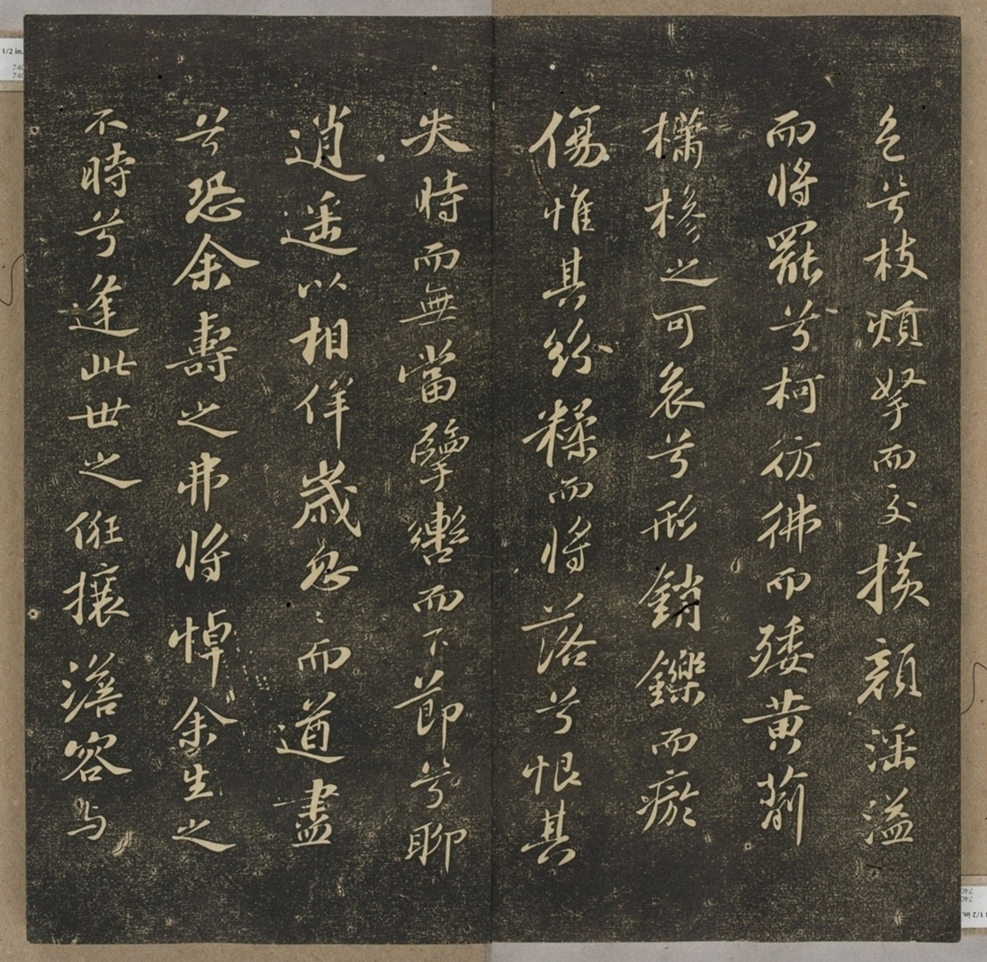 色兮枝煩挐而交横顔滛溢
而將罷兮柯彷彿而矮黄萷
櫹椮之可哀兮形銷鑠而瘀
傷惟其紛糅而將落兮恨其
失時而無當擥轡而下節兮聊
逍遥以相佯歳忽〻而遒盡
兮恐余壽之弗將悼余生之
不時兮逢此世之俇攘澹容与